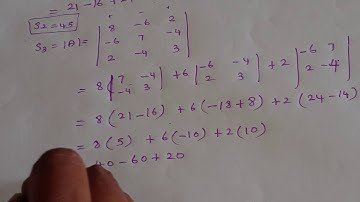 = 21-16+
S₂ = 45
S₃ = |A| = | 8 -6 2 |
| -6 7 -4 |
| 2 -4 3 |
= 8 | 7 -4 | + 6 | -6 -4 | + 2 | -6 7 |
| -4 3 | | 2 3 | | 2 -4 |
= 8 (21-16) + 6 (-18+8) + 2 (24-14)
= 8 (5) + 6 (-10) + 2 (10)
40-60+20